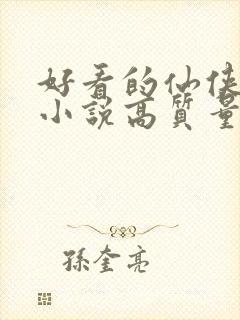 好看的仙侠
小說高質量
孫奎亮